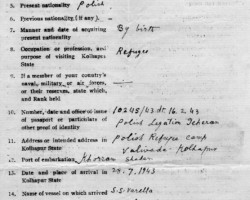 5. Present nationality Polish
6. Previous nationality (if any).
7. Manner and date of acquiring present nationality By birth
8. Occupation or profession, and purpose of visiting Kolhapur State Refugee
9. If a member of your country's naval, military, or air forces, or their reserves, state which, and Rank held
10. Number, date and office of issue of passport or particulars of other proof of identity 10245/43 dt. 16.2.43 Polish Legation Teheran
11. Address or intended address in Kolhapur State Polish Refugee camp Valivade-Kolhapur
12. Port of embarkation
13. Date and place of arrival in Kolhapur State 20.7.1943
14. Name of vessel on which arrived S.S. Varella